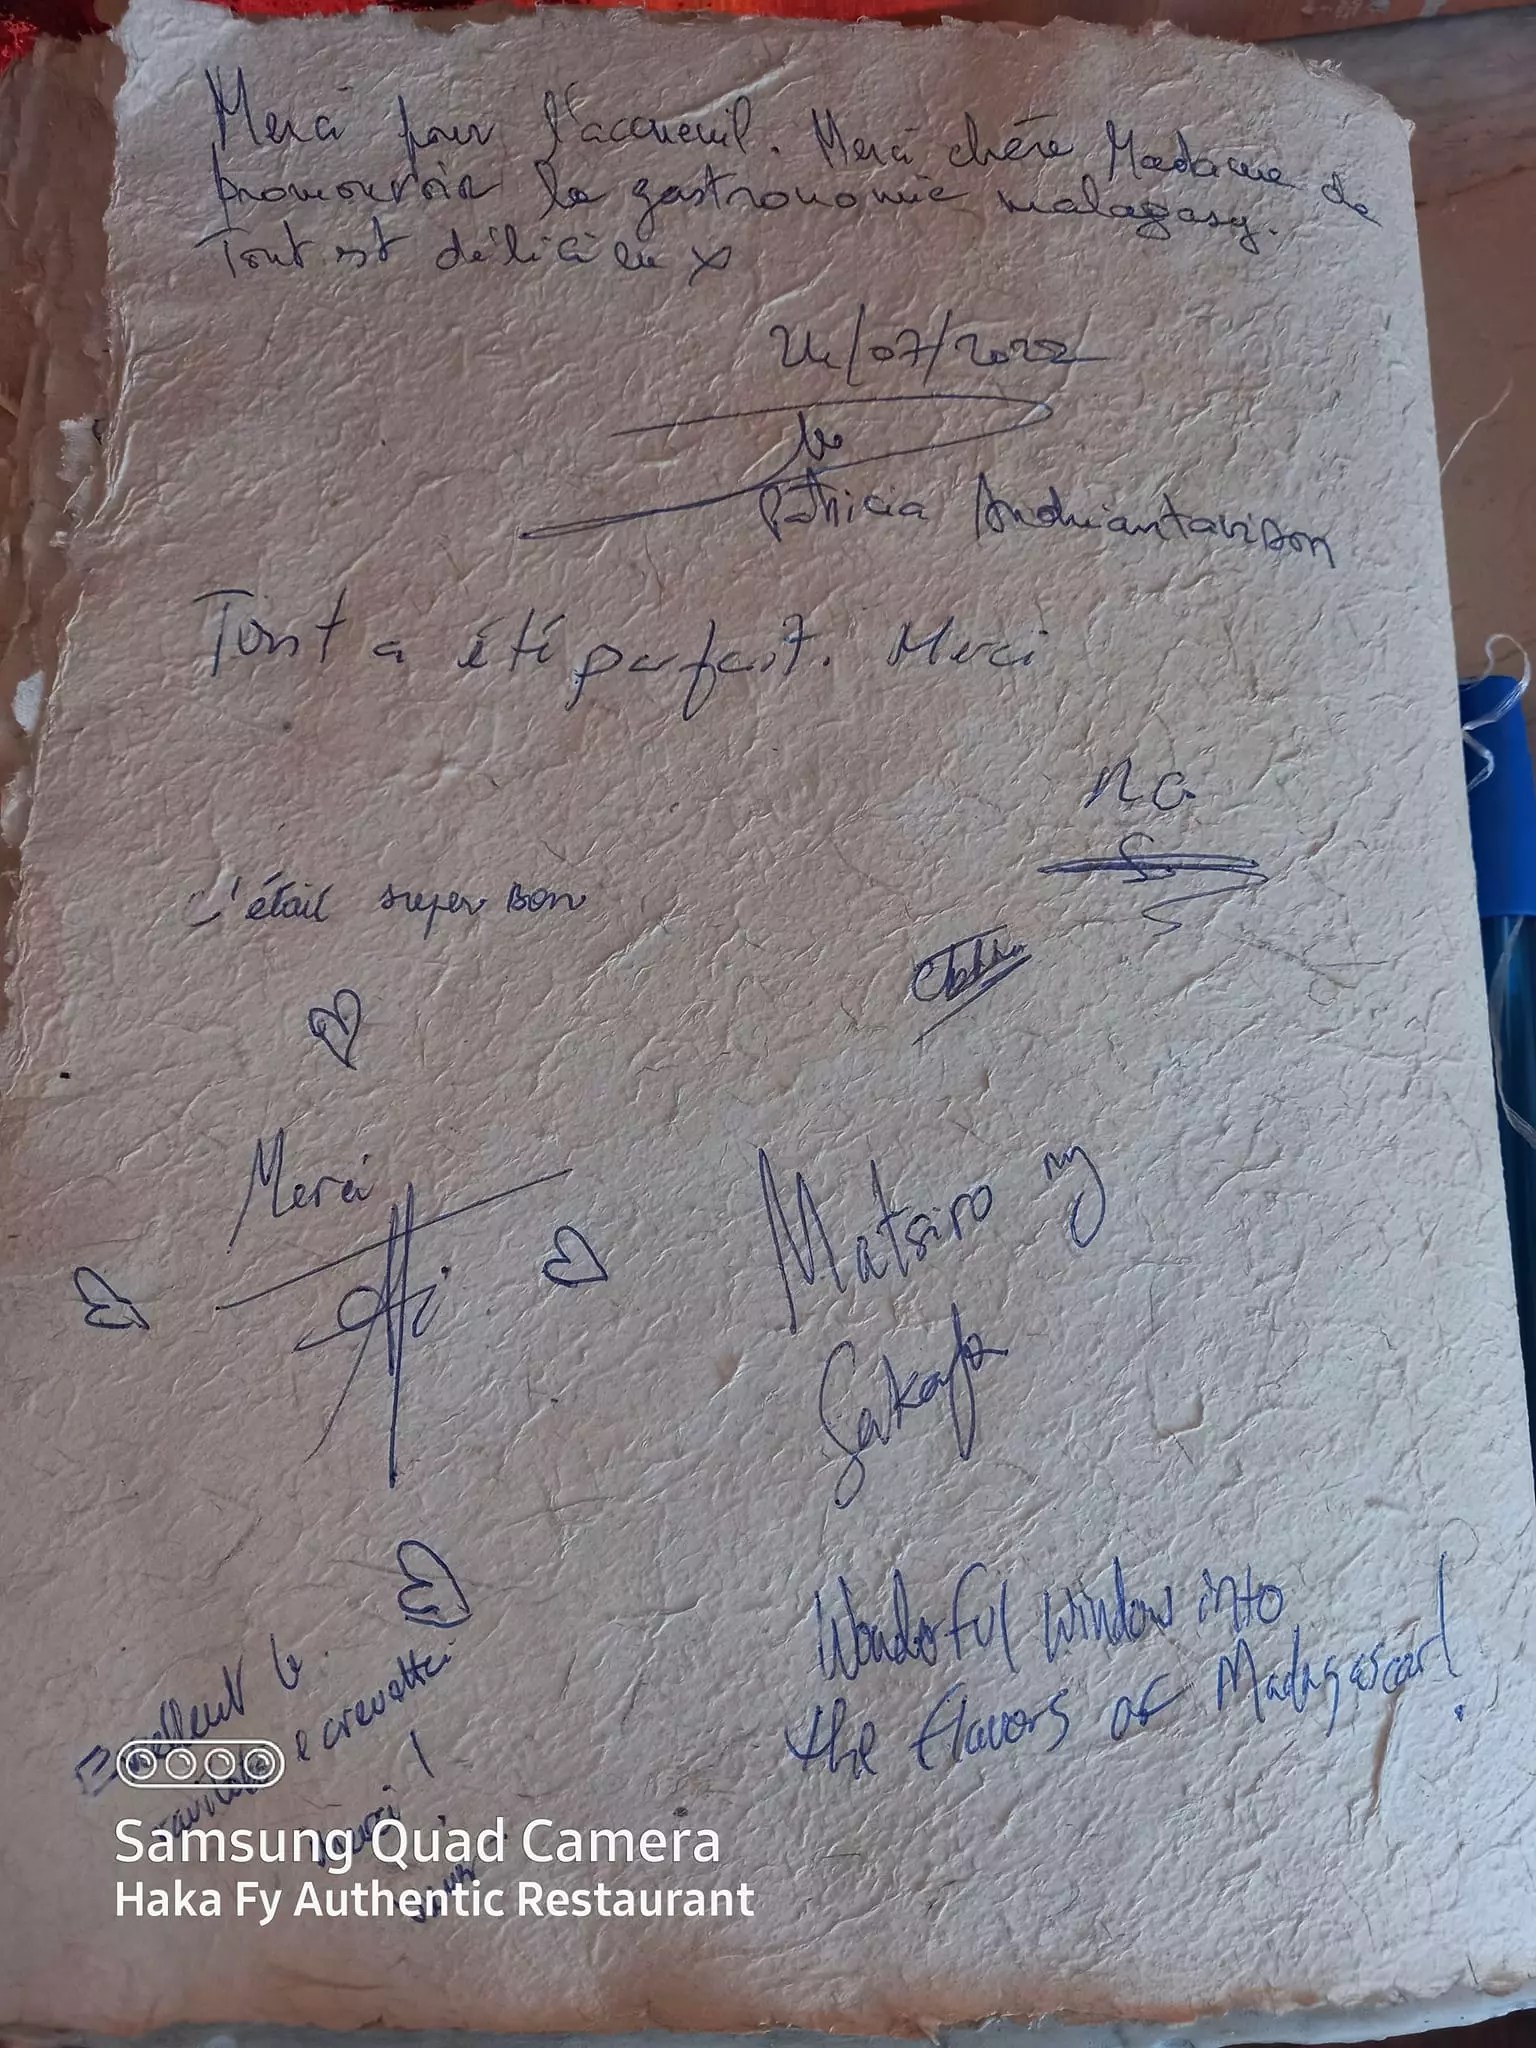 Merci pour l'accueuil. Merci chère Madame de
promouvoir la gastronomie malagasy.
Tout est délicieux
24/07/2022
Patricia Andriantavison
Tout a été parfait. Merci
c'était super bon
Merci
Matsiro ny
Sakafo
Wonderful window into
the flavors of Madagascar!
Excellent le
e crevettes
merci !
Samsung Quad Camera
Haka Fy Authentic Restaurant